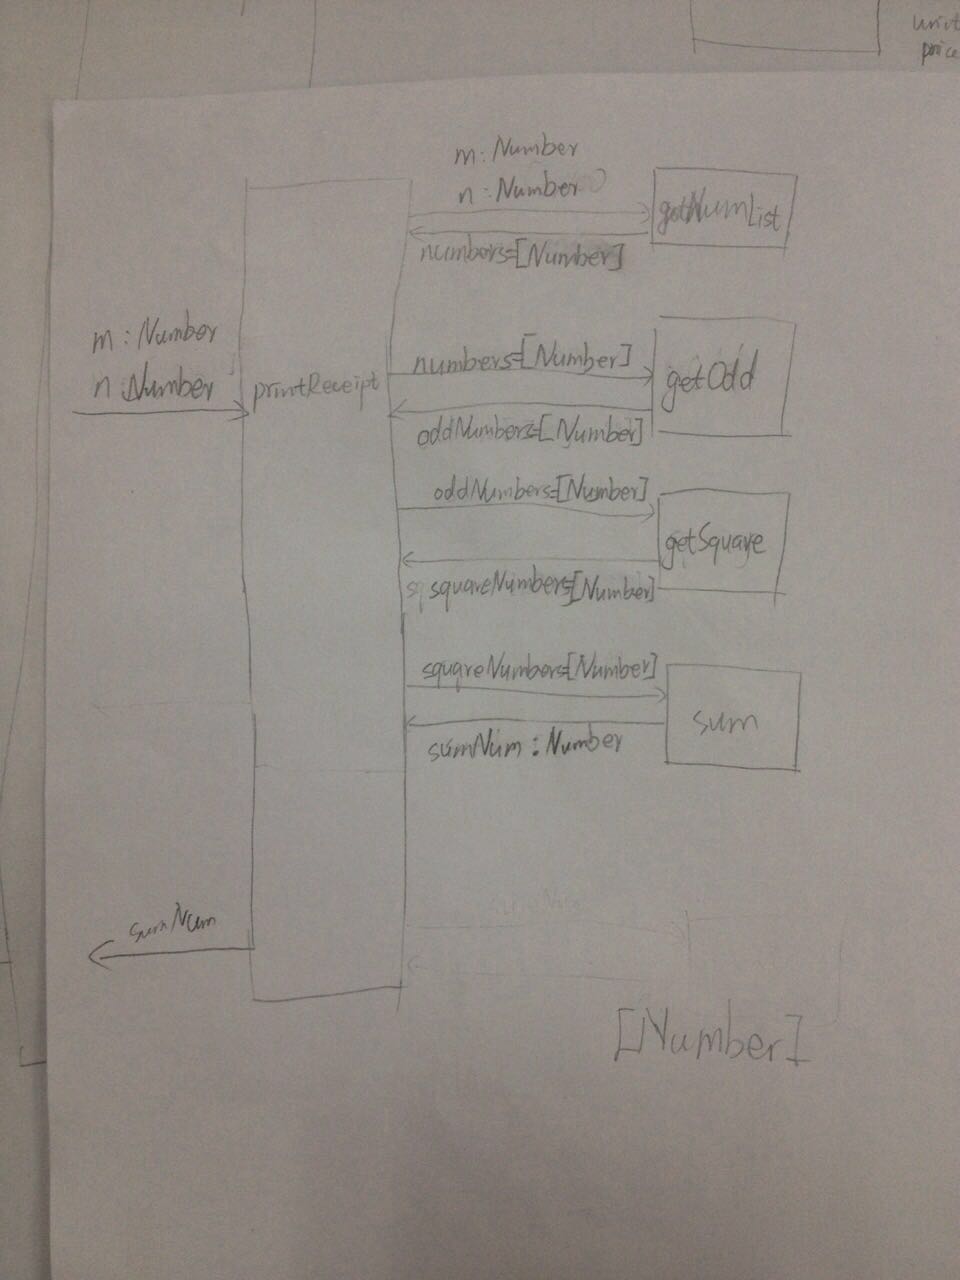 unit
price
m : Number
n : Number
getNumList
numbers=[Number]
m : Number
n : Number
printReceipt
numbers=[Number]
getOdd
oddNumbers=[Number]
oddNumbers=[Number]
getSquare
sq squareNumbers=[Number]
squareNumbers=[Number]
sum
sumNum : Number
sumNum
[Number]